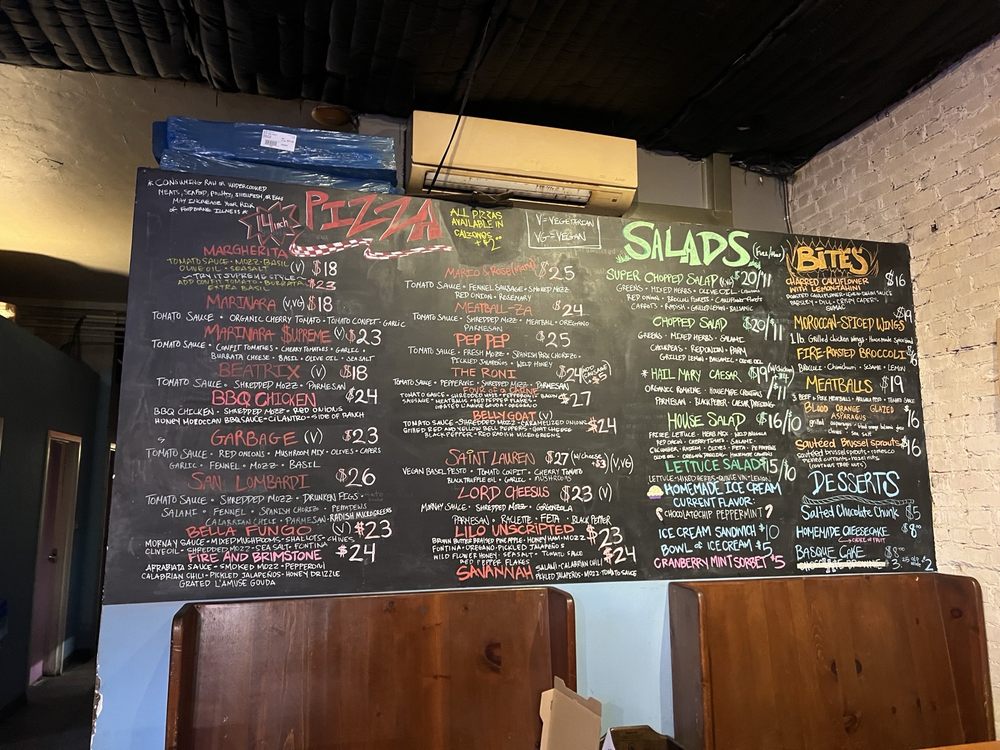 * CONSUMING RAW OR UNDERCOOKED
MEATS, SEAFOOD, POULTRY, SHELLFISH, OR EGGS
MAY INCREASE YOUR RISK
OF FOODBORNE ILLNESS *
14 inch PIZZA
ALL PIZZAS
AVAILABLE IN
CALZONES
V = VEGETARIAN
VG = VEGAN
MARGHERITA
TOMATO SAUCE · MOZZ · BASIL
OLIVE OIL · SEA SALT (V) $18
~ TRY IT SUPREME STYLE ~
ADD CONFIT TOMATO · BURRATA $23
EXTRA BASIL
MARINARA (V,VG) $18
TOMATO SAUCE · ORGANIC CHERRY TOMATO · TOMATO CONFIT · GARLIC
MARINARA $UPREME (V) $23
TOMATO SAUCE · CONFIT TOMATOES · CHERRY TOMATOES · GARLIC ·
BURRATA CHEESE · BASIL · OLIVE OIL · SEA SALT
BEATRIX (V) $18
TOMATO SAUCE · SHREDDED MOZZ · PARMESAN
BBQ CHICKEN $24
BBQ CHICKEN · SHREDDED MOZZ · RED ONIONS
HONEY MOROCCAN BBQ SAUCE · CILANTRO · SIDE OF RANCH
GARBAGE (V) $23
TOMATO SAUCE · RED ONIONS · MUSHROOM MIX · OLIVES · CAPERS
GARLIC · FENNEL · MOZZ · BASIL
SAN LOMBARDI $26
TOMATO SAUCE · SHREDDED MOZZ · DRUNKEN FIGS ·
SALAMI · FENNEL · SPANISH CHORIZO ·
CALABRIAN CHILI · PARMESAN · RADISH MICROGREENS
BELLA FUNGO (V) $23
MORNAY SAUCE · MIXED MUSHROOMS · SHALLOTS · CHIVES
OLIVE OIL · SHREDDED MOZZ · SEA SALT · FONTINA
FIRE AND BRIMSTONE $24
ARRABIATA SAUCE · SMOKED MOZZ · PEPPERONI
CALABRIAN CHILI · PICKLED JALAPEÑOS · HONEY DRIZZLE
GRATED L'AMUSE GOUDA
MARIO & ROSE (MARY) $25
TOMATO SAUCE · FENNEL SAUSAGE · SMOKED MOZZ
RED ONION · ROSEMARY
MEATBALL-ZA $24
TOMATO SAUCE · SHREDDED MOZZ · MEATBALL · OREGANO
PARMESAN
PEP PEP $25
TOMATO SAUCE · FRESH MOZZ · SPANISH CHORIZO
PICKLED JALAPEÑOS · WILD HONEY
THE RONI $24
TOMATO SAUCE · PEPPERONI · SHREDDED MOZZ · PARMESAN
FOUR OF A CARNE $27
TOMATO SAUCE · SHREDDED MOZZ · PEPPERONI · BACON
SAUSAGE · MEATBALLS · RED PEPPER FLAKES
GRATED L'AMUSE GOUDA · OREGANO
BELLY GOAT (V) $24
TOMATO SAUCE · SHREDDED MOZZ · CARAMELIZED ONIONS
GRILLED RED AND YELLOW BELL PEPPERS · GOAT CHEESE
BLACK PEPPER · RED RADISH MICROGREENS
SAINT LAUREN $27 (W/ CHEESE +$3) (V,VG)
VEGAN BASIL PESTO · TOMATO CONFIT · CHERRY TOMATO
BLACK TRUFFLE OIL · GARLIC · MUSHROOMS
LORD CHEESUS $23 (V)
MORNAY SAUCE · SHREDDED MOZZ · GORGONZOLA
PARMESAN · RACLETTE · FETA · BLACK PEPPER
LILO UNSCRIPTED $23
BROWN BUTTER ROASTED PINEAPPLE · HONEY HAM · MOZZ
FONTINA · OREGANO · PICKLED JALAPEÑOS
WILD FLOWER HONEY · SEA SALT · TOMATO SAUCE
RED PEPPER FLAKES
SAVANNAH $24
SALAMI · CALABRIAN CHILI
PICKLED JALAPEÑOS · MOZZ · TOMATO SAUCE
SALADS (Full/Half)
SUPER CHOPPED SALAD $20/11
GREENS · MIXED HERBS · OLIVE OIL ·
RED ONIONS · BROCCOLI FLORETS · CAULIFLOWER FLORETS
CARROTS · RADISH · GRILLED LEMON · BALSAMIC
CHOPPED SALAD $20/11
GREENS · MIXED HERBS · SALAMI
CHICKPEAS · RED ONION · PARM
GRILLED LEMON · BALSAMIC · OLIVE OIL
* HAIL MARY CAESAR $19/11
ORGANIC ROMAINE · HOUSEMADE CROUTONS
PARMESAN · BLACK PEPPER · CAESAR DRESSING
HOUSE SALAD $16/10
LETTUCE SALAD $15/10
HOMEMADE ICE CREAM
CURRENT FLAVOR:
CHOCOLATE CHIP PEPPERMINT
ICE CREAM SANDWICH $10
BOWL of ICE CREAM $5
CRANBERRY MINT SORBET $5
BITES
CHARRED CAULIFLOWER $16
WITH LEMON TAHINI
MOROCCAN-SPICED WINGS $19
1 lb. Grilled chicken wings · Housemade
FIRE-ROASTED BROCCOLI
BROCCOLI · Chimichurri · SESAME · LEMON
MEATBALLS $19
BLOOD ORANGE GLAZED
ASPARAGUS $16
sautéed Brussel sprouts $16
DESSERTS
Salted Chocolate Chunk $5
HOMEMADE CHEESECAKE $8
BASQUE CAKE $9